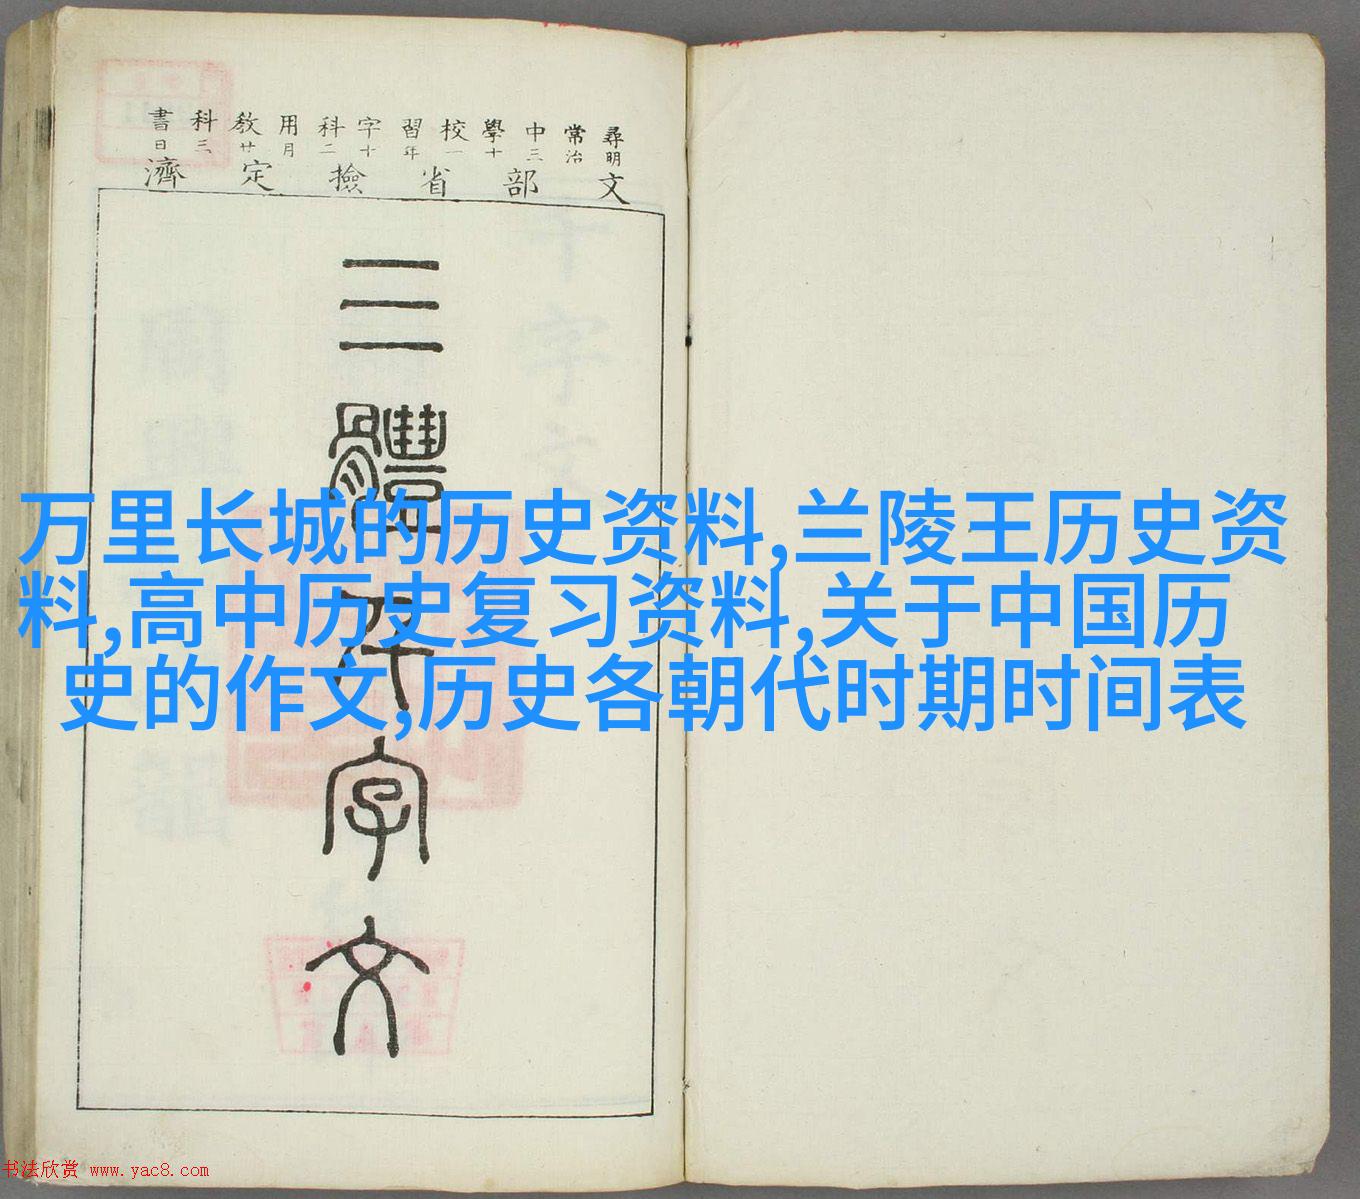 尋常中學校習字科用教科書
明治三十一年十二月廿三日
文部省撿定濟
三體千字文
万里长城的历史资料,兰陵王历史资
料,高中历史复习资料,关于中国历
史的作文,历史各朝代时期时间表
书法欣赏 www.yac8.com